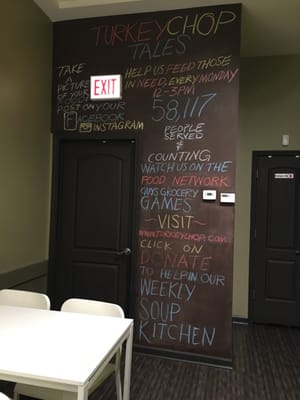 TURKEYCHOP
TALES
HELP US FEED THOSE
IN NEED, EVERY MONDAY
12-3PM
58,117
PEOPLE
SERVED
&
COUNTING
WATCH US ON THE
FOOD NETWORK
GUYS GROCERY
GAMES
~VISIT~
WWW.TURKEYCHOP.COM
CLICK ON
DONATE
TO HELP IN OUR
WEEKLY
SOUP
KITCHEN
TAKE
A
PICTURE
OF YOUR
POST ON YOUR
FACEBOOK
INSTAGRAM
EXIT